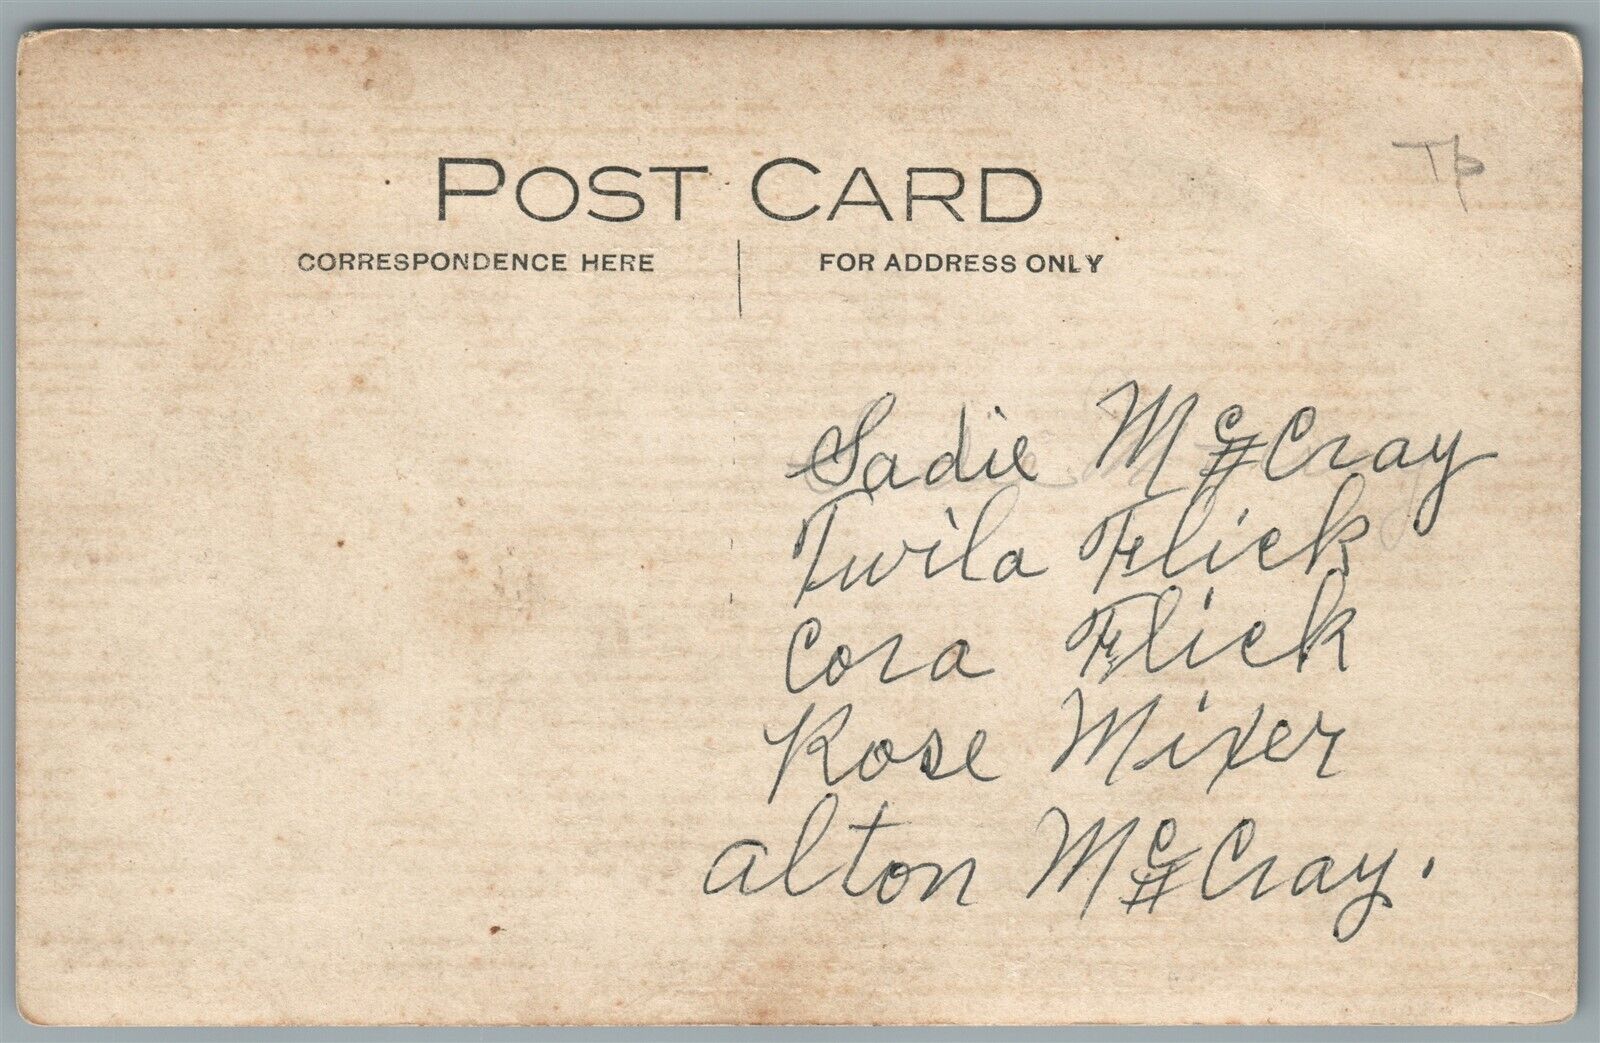 Tp
POST CARD
CORRESPONDENCE HERE
FOR ADDRESS ONLY
Sadie McCray
Twila Flick
Cora Flick
Rose Mixer
Alton McCray.